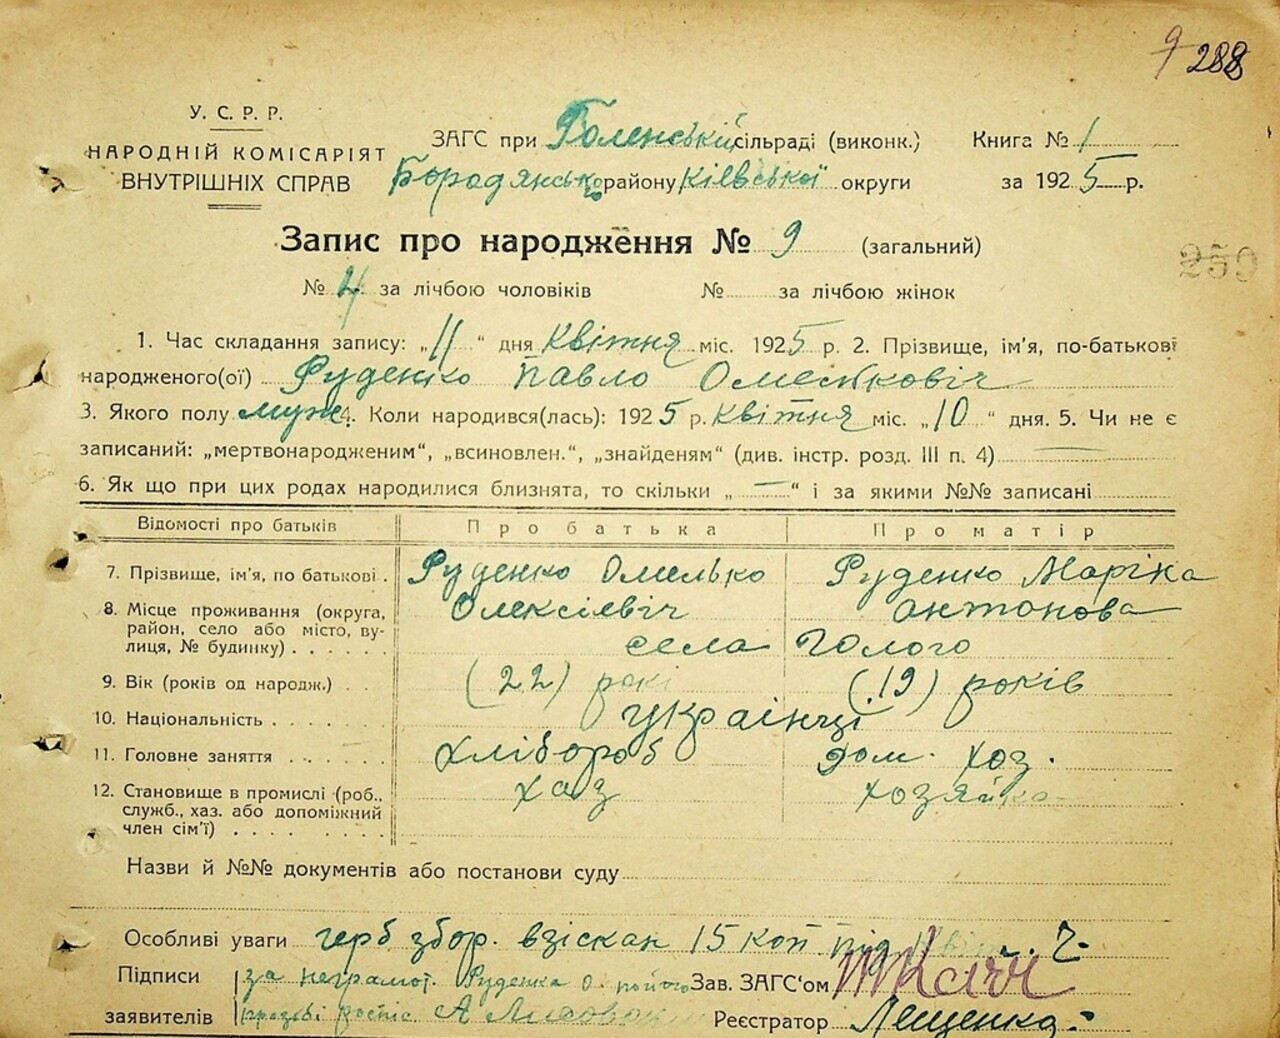 9 288
У. С. Р. Р.
НАРОДНІЙ КОМІСАРІЯТ
ВНУТРІШНІХ СПРАВ
ЗАГС при Голенській сільраді (виконк.)
Бородянсько району Київської округи
Книга № 1
за 1925 р.
Запис про народження № 9 (загальний)
259
№ 4 за лічбою чоловіків № за лічбою жінок
1. Час складання запису: „11" дня Квітня міс. 1925 р. 2. Прізвище, ім'я, по-батькові
народженого(ої) Руденко Павло Омелькович
3. Якого полу муж 4. Коли народився(лась): 1925 р. Квітня міс. „10" дня. 5. Чи не є
записаний: „мертвонародженим", „всиновлен.", „знайденям" (див. інстр. розд. III п. 4)
6. Як що при цих родах народилися близнята, то скільки „—" і за якими №№ записані
Відомості про батьків Про батька Про матір
7. Прізвище, ім'я, по батькові . Руденко Омелько Руденко Маріка
Олексієвіч антонова
8. Місце проживання (округа,
район, село або місто, ву-
лиця, № будинку) . . . . . . села Голого
9. Вік (років од народж.) . . (22) рокі (19) років
10. Національність . . . . . . українці
11. Головне заняття . . . . . . хлібороб дом. хоз.
12. Становище в промислі (роб., хаз хозяйка
служб., хаз. або допоміжний
член сім'ї) . . . . . . .
Назви й №№ документів або постанови суду
Особливі уваги герб збор. взіскан 15 коп під Ч.
Підписи за неграмот. Руденка О.
Зав. ЗАГС'ом
заявителів роспис А
Реєстратор Лещенко